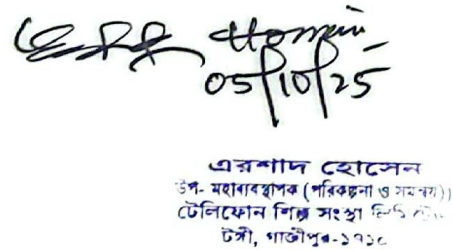 Hossain
05/10/25
এরশাদ হোসেন
উপ- মহাব্যবস্থাপক (পরিকল্পনা ও সমন্বয়)
টেলিফোন শিল্প সংস্থা লিমিটেড
টঙ্গী, গাজীপুর-১৭১০